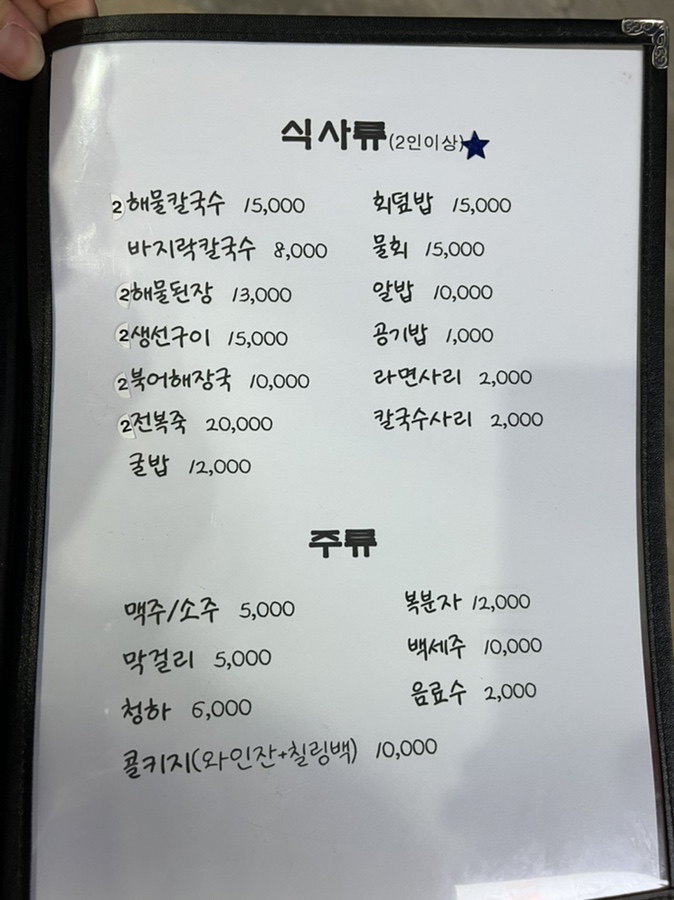 식사류(2인이상)
2 해물칼국수 15,000
바지락칼국수 8,000
2 해물된장 13,000
2 생선구이 15,000
2 북어해장국 10,000
2 전복죽 20,000
굴밥 12,000
회덮밥 15,000
물회 15,000
알밥 10,000
공기밥 1,000
라면사리 2,000
칼국수사리 2,000
주류
맥주/소주 5,000
막걸리 5,000
청하 6,000
콜키지(와인잔+칠링백) 10,000
복분자 12,000
백세주 10,000
음료수 2,000